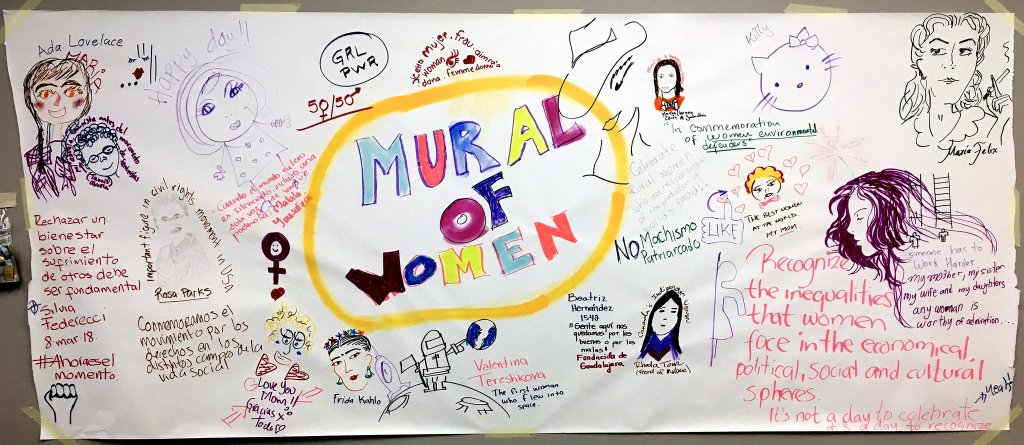 Ada Lovelace
Happy day!!
GRL
PWR
50/50
mujer
woman
femme
dona
Kitty
María Felix
MURAL
OF
WOMEN
"In commemoration
of women environmental
defenders"
Celebrate
rural women
THE BEST WOMEN
AT THE WORLD
MY MOM
LIKE
NO Machismo
Patriarcado
Cuando el mundo entero
es silencioso, incluso una
sola voz se vuelve
poderosa. Malala
Yousafzai
important figure in civil rights movement in USA
Rosa Parks
Rechazar un
bienestar
sobre el
sufrimiento
de otros debe
ser fundamental
Silvia
Federecci
8·mar·18.
#Ahoraesel
momento
Conmemoramos el
movimiento por los
derechos en los
distintos campos de la
vida social
I Love you
Mom!!
Gracias x
Todo
Frida Kahlo
Valentina
Tereshkova
The first woman
who flew into
space.
Beatriz
Hernández
1542
"Gente aquí nos
quedamos por las
buenas o por las
malas"
Fundación de
Guadalajara
Canada's Indigenous Women
someone has to
Work Harder
my mother, my sister
my wife and my daughters
any woman is
worthy of admiration...
Recognize
the inequalities
that women
face in the economical,
political, social and cultural
spheres.
It's not a day to celebrate
it's a day to recognize
yeah